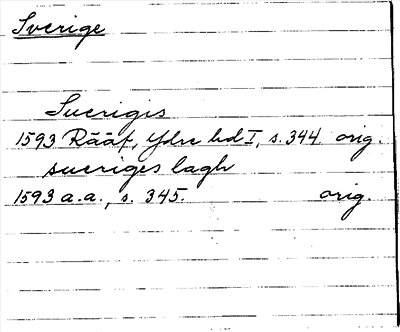 Sverige
Sueriges
1593 Rääf, Ydre hd I, s. 344 orig.
sueriges lagh
1593 a.a., s. 345. orig.